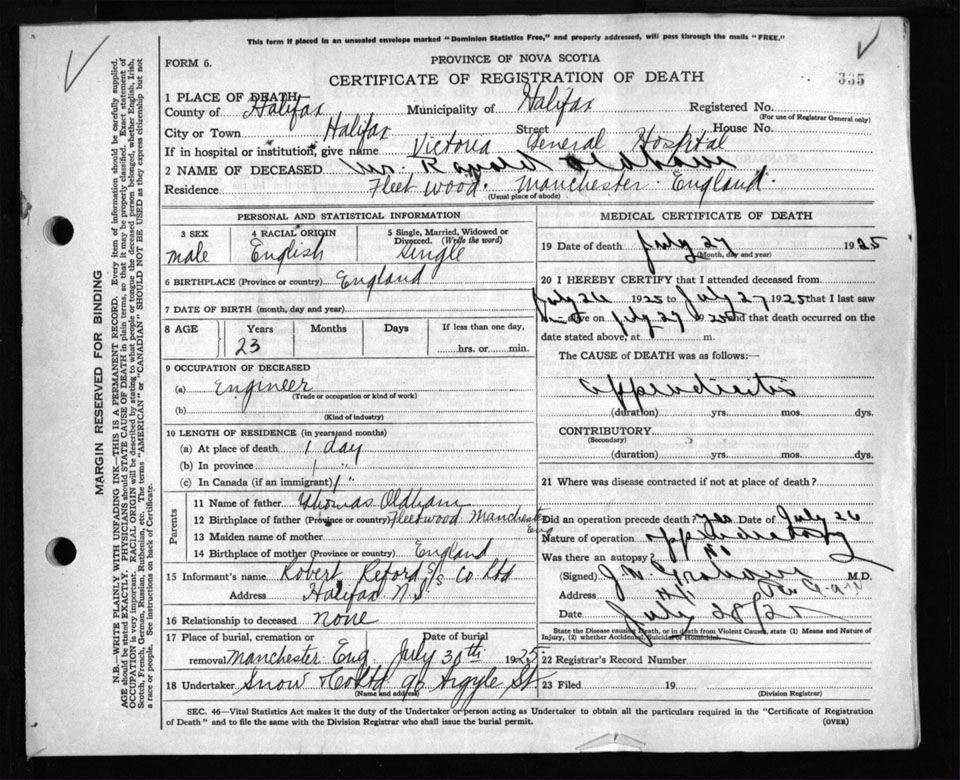 This form if placed in an unsealed envelope marked "Dominion Statistics Free," and properly addressed, will pass through the mails "FREE."
FORM 6.
PROVINCE OF NOVA SCOTIA
CERTIFICATE OF REGISTRATION OF DEATH
335
1 PLACE OF DEATH
County of Halifax Municipality of Halifax Registered No.
(For use of Registrar General only)
City or Town Halifax Street House No.
If in hospital or institution, give name Victoria General Hospital
2 NAME OF DECEASED Mr. Ronald Oldham
Residence Fleetwood. Manchester. England.
(Usual place of abode)
PERSONAL AND STATISTICAL INFORMATION
3 SEX
male
4 RACIAL ORIGIN
English
5 Single, Married, Widowed or Divorced. (Write the word)
Single
6 BIRTHPLACE (Province or country) England
7 DATE OF BIRTH (month, day and year)
8 AGE Years Months Days If less than one day,
23 hrs. or min.
9 OCCUPATION OF DECEASED
(a) Engineer
(Trade or occupation or kind of work)
(b)
(Kind of industry)
10 LENGTH OF RESIDENCE (in years and months)
(a) At place of death 1 day
(b) In province 1 "
(c) In Canada (if an immigrant) 1 "
Parents
11 Name of father Thomas Oldham
12 Birthplace of father (Province or country) Fleetwood Manchester Eng
13 Maiden name of mother
14 Birthplace of mother (Province or country) England
15 Informant's name Robert Reford SS Co Ltd
Address Halifax N.S.
16 Relationship to deceased none
17 Place of burial, cremation or Date of burial
removal Manchester Eng July 30th 1925
18 Undertaker Snow & Co Ltd 90 Argyle St.
(Name and address)
MEDICAL CERTIFICATE OF DEATH
19 Date of death July 27 1925
(Month, day and year)
20 I HEREBY CERTIFY that I attended deceased from
July 26 1925 to July 27 1925 that I last saw
him alive on July 27 1925 and that death occurred on the
date stated above, at m.
The CAUSE of DEATH was as follows:—
appendicitis
(duration) yrs. mos. dys.
CONTRIBUTORY
(Secondary)
(duration) yrs. mos. dys.
21 Where was disease contracted if not at place of death?
Did an operation precede death? yes Date of July 26
Nature of operation appendectomy
Was there an autopsy? No
(Signed) M.D.
Address
Date July 28/25
State the Disease causing Death, or in death from Violent Causes, state (1) Means and Nature of Injury, (2) whether Accidental, Suicidal or Homicidal.
22 Registrar's Record Number
23 Filed 19
(Division Registrar)
SEC. 46—Vital Statistics Act makes it the duty of the Undertaker or person acting as Undertaker to obtain all the particulars required in the "Certificate of Registration
of Death" and to file the same with the Division Registrar who shall issue the burial permit.
(OVER)
MARGIN RESERVED FOR BINDING
N.B.—WRITE PLAINLY WITH UNFADING INK—THIS IS A PERMANENT RECORD. Every item of information should be carefully supplied.
AGE should be stated EXACTLY. PHYSICIANS should STATE CAUSE OF DEATH in plain terms, so that it may be properly classified. Exact statement of
OCCUPATION is very important. RACIAL ORIGIN will be described by stating to what people or tongue the deceased person belonged, whether English, Irish,
Scotch, French, German, Russian, Ruthenian, etc. The terms "AMERICAN" or "CANADIAN" SHOULD NOT BE USED as they express citizenship but not
a race or people. See instructions on back of Certificate.